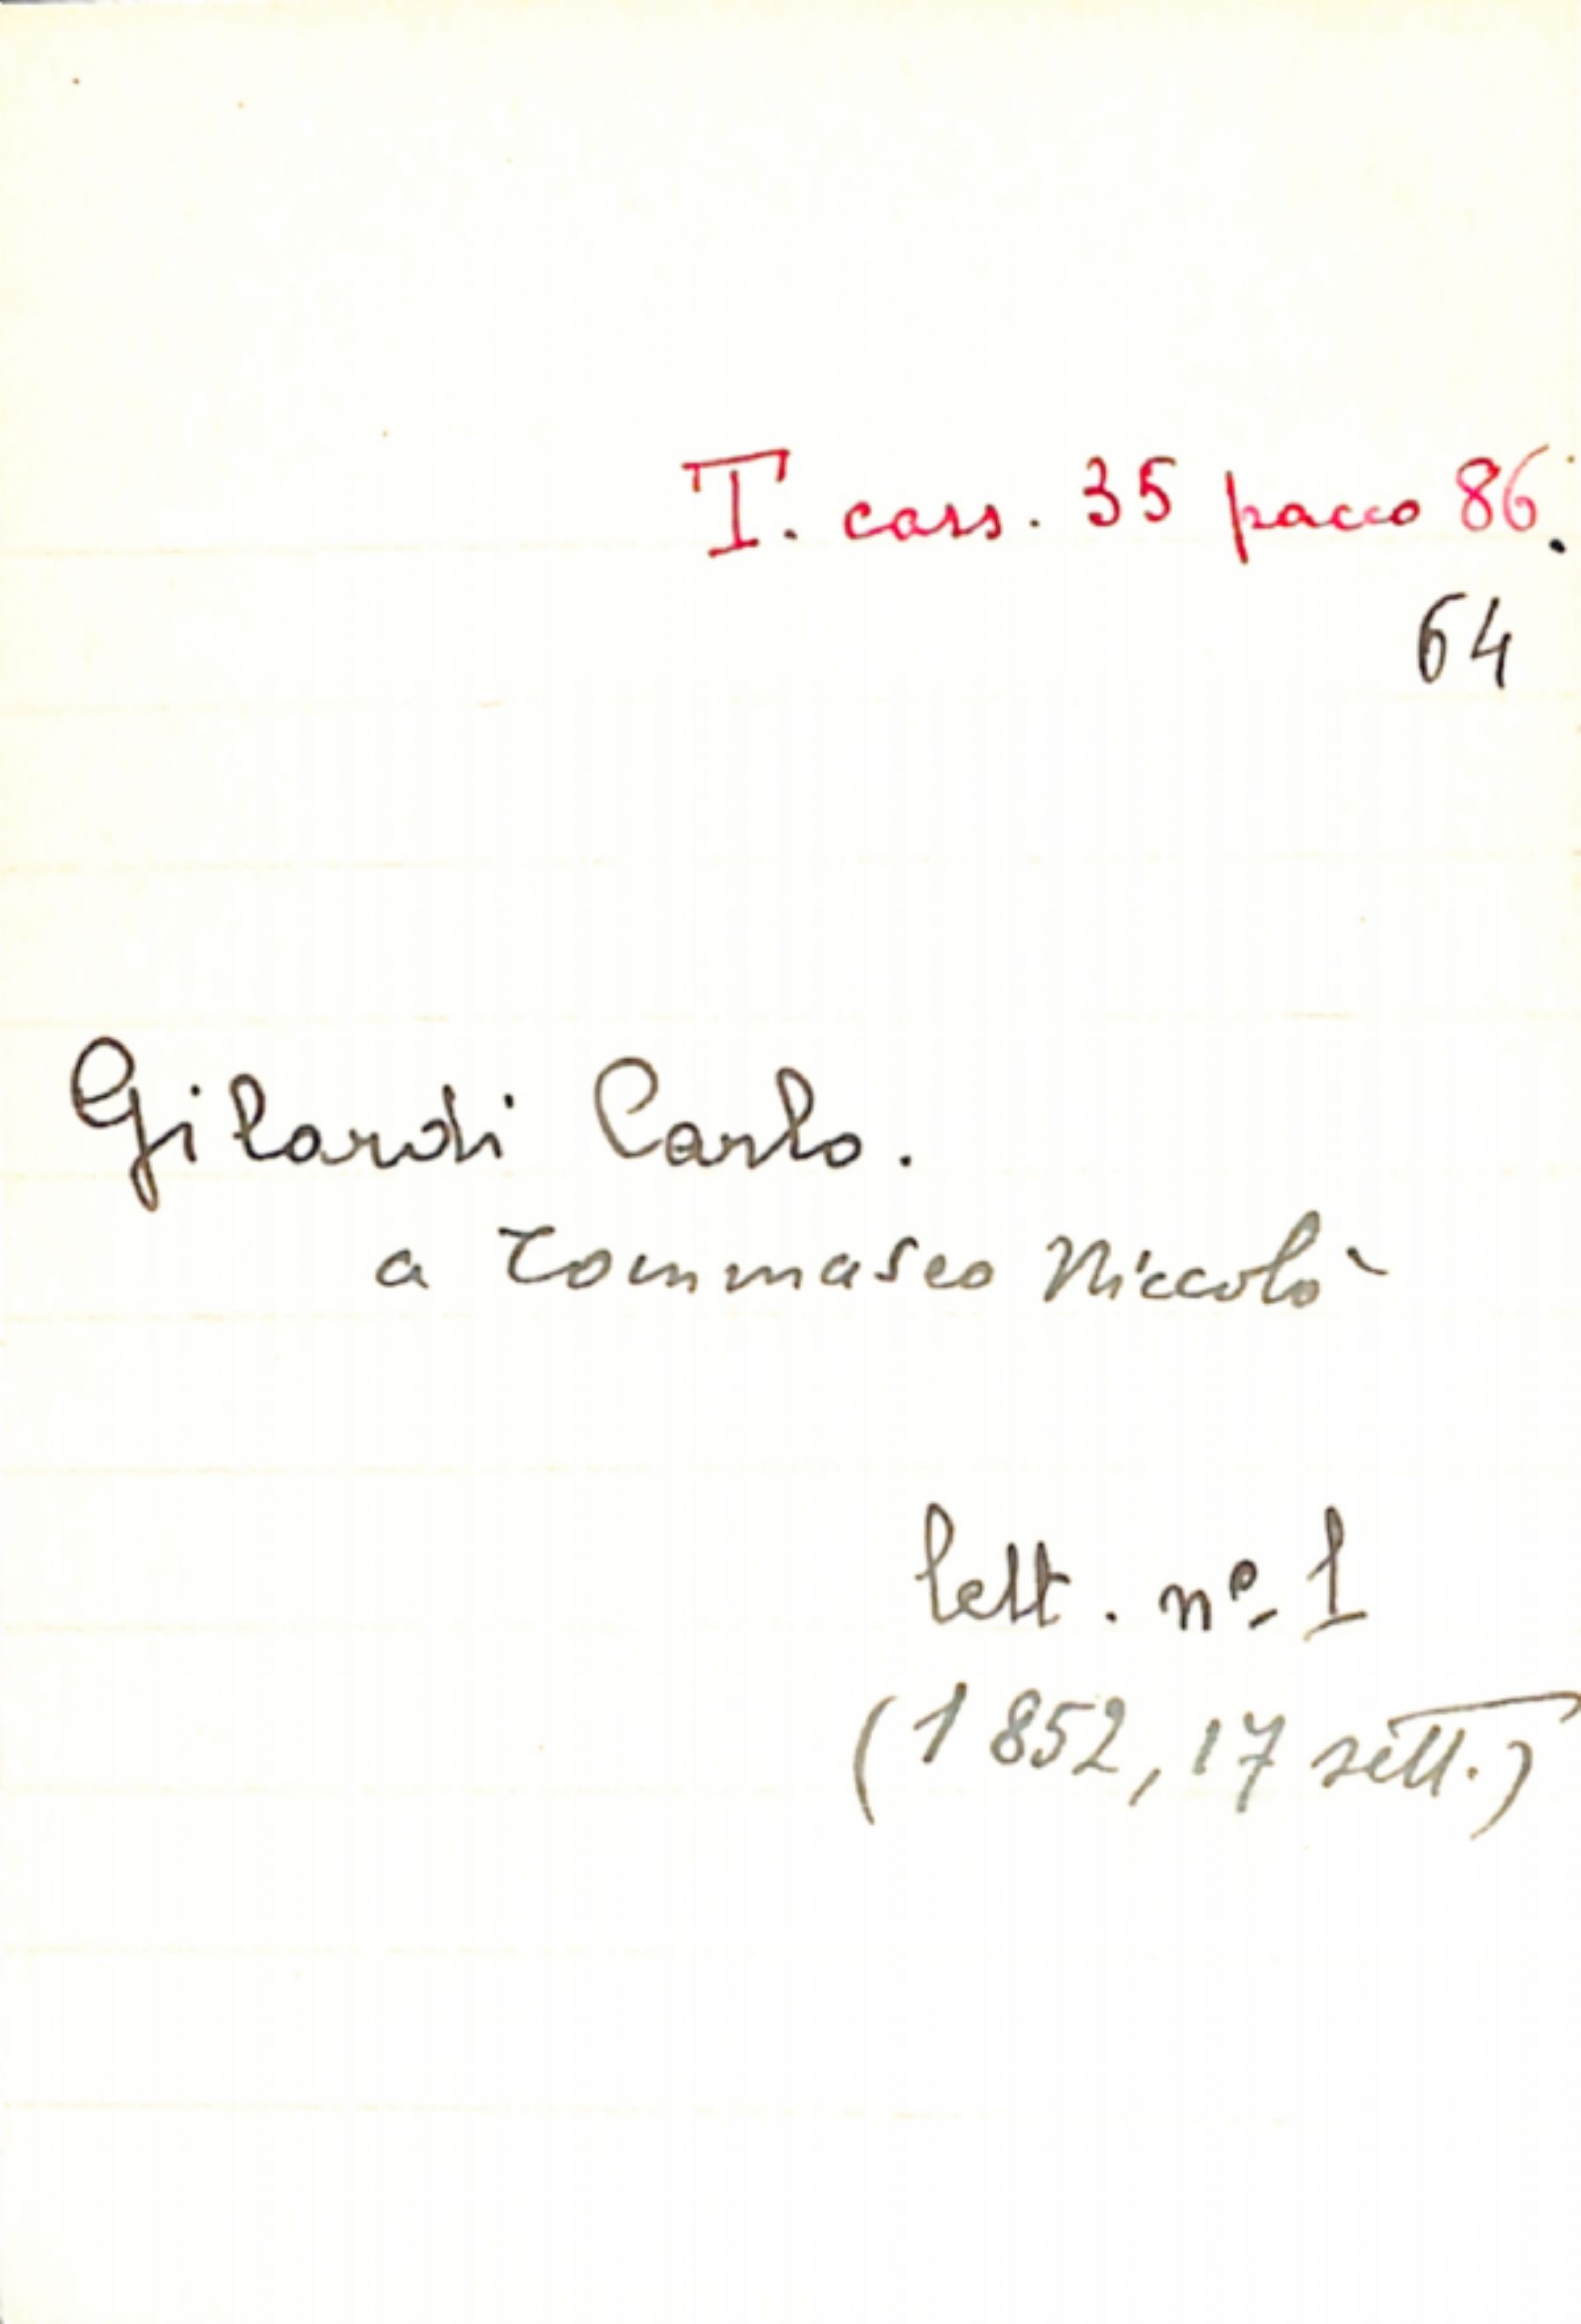 T. cass. 35 pacco 86.
64
Gilardi Carlo.
a Tommaseo Niccolò
lett. nº 1
(1852, 17 sett.)